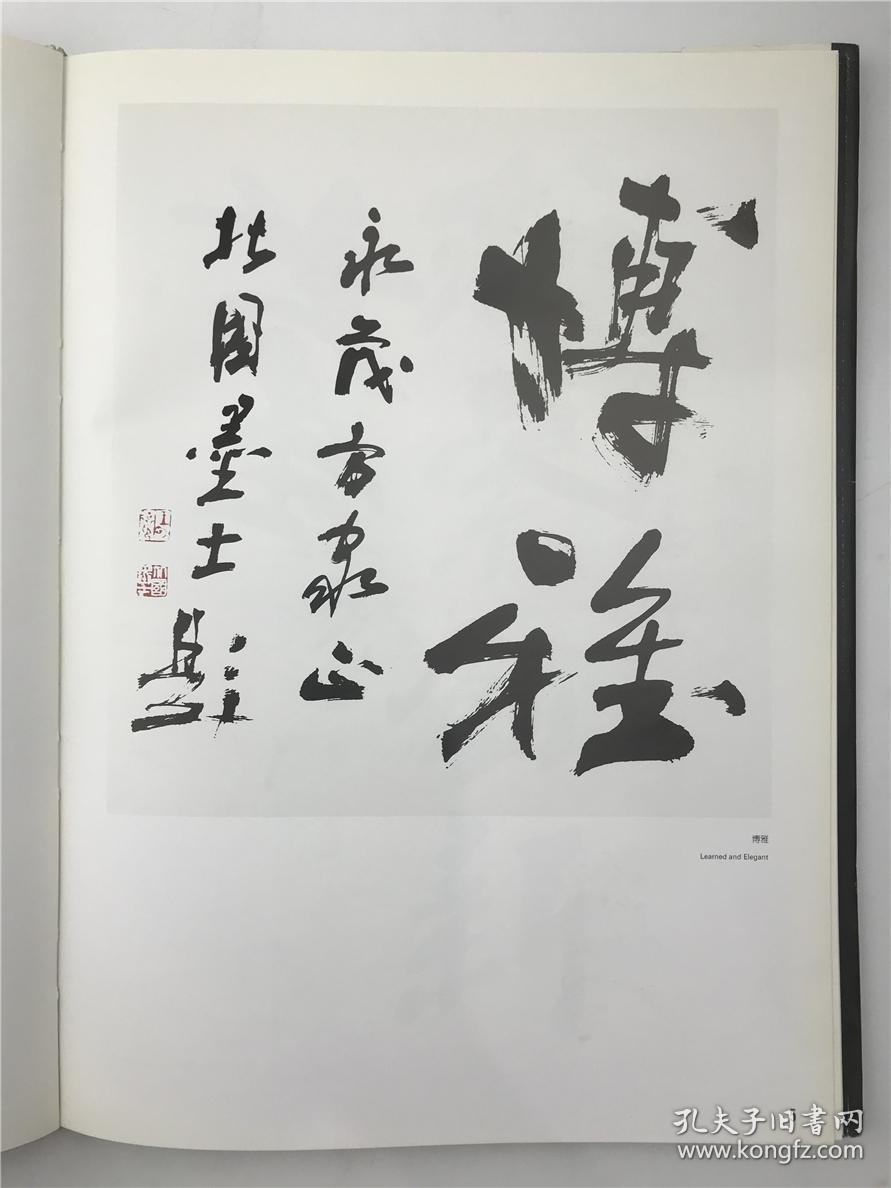 博雅
永茂方家正
北国墨士题
博雅
Learned and Elegant
5
孔夫子旧书网
www.kongfz.com